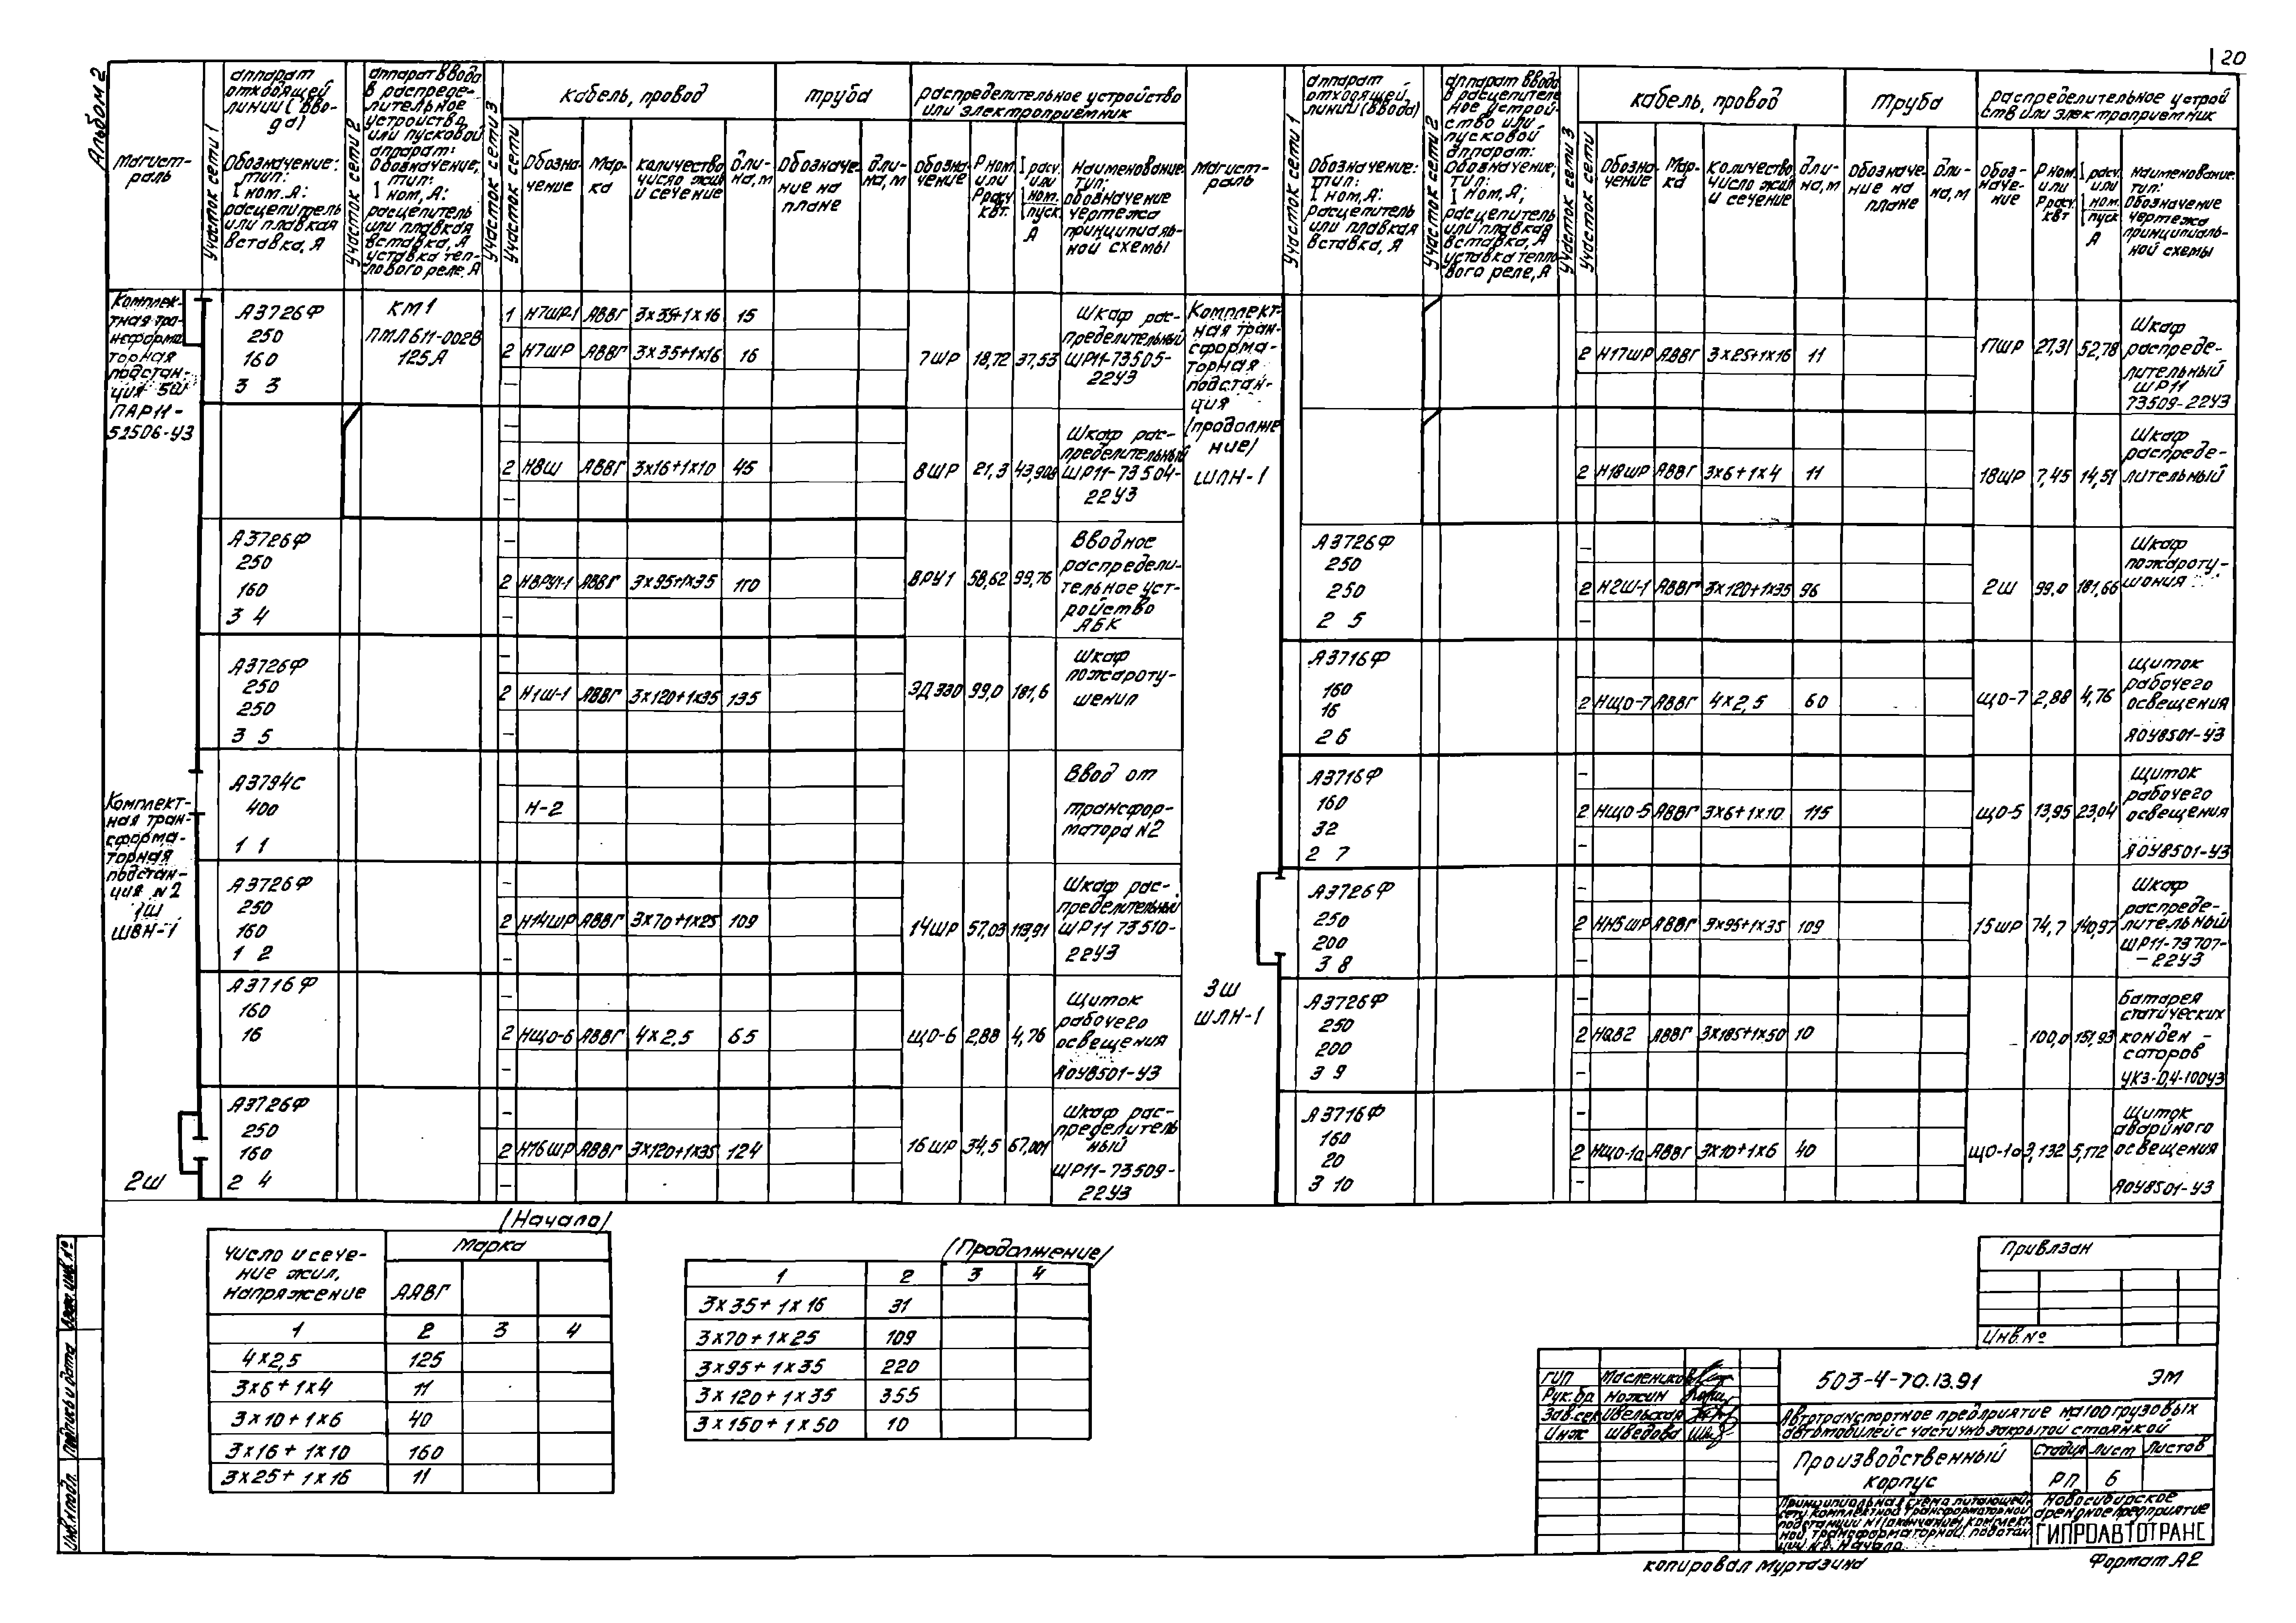 20
Альбом 2
Магист-
раль
Участок сети 1
аппарат
отходящей
линии (Вво-
да)
Обозначение:
тип:
I ном. А:
расцепитель
или плавкая
вставка, А
Участок сети 2
аппарат ввода
в распреде-
лительное
устройство
или пусковой
аппарат:
Обозначение,
тип:
I ном, А:
расцепитель
или плавкая
вставка, А
уставка теп-
лового реле, А
Участок сети 3
Участок сети
кабель, провод
Обозна-
чение
Мар-
ка
количество
число жил
и сечение
дли-
на, м
труба
Обозначе-
ние на
плане
дли-
на, м
распределительное устройство
или электроприемник
Обозна-
чение
Р ном
или
Р расч
кВт.
I расч
или
ном.
пуск.
А
Наименование
тип,
обозначение
чертежа
принципиаль-
ной схемы
Комплек-
тная тра-
нсформа
торная
подстан-
ция 5Ш
ПАР11-
52506-У3
А3726Ф
250
160
3 3
КМ1
ПМЛ611-002В
125А
1 Н7ШР-1 АВВГ 3х35+1х16 15
2 Н7ШР АВВГ 3х35+1х16 16
–
7ШР 18,72 37,53
Шкаф рас-
пределительный
ШР11-73505-
22У3
–
2 Н8Ш АВВГ 3х16+1х10 45
–
8ШР 21,3 43,908
Шкаф рас-
пределительный
ШР11-73504-
22У3
А3726Ф
250
160
3 4
–
2 НВРУ1-1 АВВГ 3х95+1х35 110
–
ВРУ1 58,62 99,76
Вводное
распредели-
тельное уст-
ройство
АБК
А3726Ф
250
250
3 5
–
2 Н1Ш-1 АВВГ 3х120+1х35 135
–
ЭД330 99,0 181,6
Шкаф
пожароту-
шения
Комплект-
ная тран-
сформа-
торная
подстан-
ция N2
1Ш
ШВН-1
А3794С
400
1 1
Н-2
Ввод от
трансфор-
матора N2
А3726Ф
250
160
1 2
–
2 Н14ШР АВВГ 3х70+1х25 109
–
14ШР 57,03 113,91
Шкаф рас-
пределительный
ШР11 73510-
22У3
А3716Ф
160
16
–
2 НЩО-6 АВВГ 4х2,5 65
–
ЩО-6 2,88 4,76
Щиток
рабочего
освещения
ЯОУ8501-У3
2Ш
А3726Ф
250
160
2 4
–
2 Н16ШР АВВГ 3х120+1х35 124
–
16ШР 34,5 67,001
Шкаф рас-
пределитель
ный
ШР11-73509-
22У3
Магист-
раль
Участок сети 1
аппарат
отходящей
линии (ввода)
Обозначение:
тип:
I ном, А:
расцепитель
или плавкая
вставка, А
Участок сети 2
аппарат ввода
в расцепителе
ное устрой-
ство или
пусковой
аппарат:
Обозначение,
тип:
I ном, А;
расцепитель
или плавкая
вставка, А
уставка тепло
вого реле, А
Участок сети 3
Участок сети
кабель, провод
Обозна-
чение
Мар-
ка
Количество
число жил
и сечение
дли-
на, м
труба
Обозначе-
ние на
плане
дли-
на, м
распределительное устрой
ств или электроприемник
Обоз-
наче-
ние
Р ном.
или
Р расч
кВт
I расч
или
ном.
пуск.
А
Наименование
тип:
Обозначение
чертежа
принципиаль-
ной схемы
Комплект-
ная тран-
сформа-
торная
подстан-
ция
/продолже
ние/
ШЛН-1
2 Н17ШР АВВГ 3х25+1х16 11
17ШР 27,31 52,78
Шкаф
распреде-
лительный
ШР11
73509-22У3
2 Н18ШР АВВГ 3х6+1х4 11
18ШР 7,45 14,51
Шкаф
распреде-
лительный
А3726Ф
250
250
2 5
–
2 Н2Ш-1 АВВГ 3х120+1х35 96
–
2Ш 99,0 181,66
Шкаф
пожароту-
шения
А3716Ф
160
16
2 6
2 НЩО-7 АВВГ 4х2,5 60
ЩО-7 2,88 4,76
Щиток
рабочего
освещения
ЯОУ8501-У3
А3716Ф
160
32
2 7
–
2 НЩО-5 АВВГ 3х6+1х10 115
–
ЩО-5 13,95 23,04
Щиток
рабочего
освещения
ЯОУ8501-У3
А3726Ф
250
200
3 8
–
2 НН5ШР АВВГ 3х95+1х35 109
–
15ШР 74,7 140,97
Шкаф
распреде-
лительный
ШР11-73707-
– 22У3
3Ш
ШЛН-1
А3726Ф
250
200
3 9
–
2 НQВ2 АВВГ 3х185+1х50 10
–
100,0 151,93
Батарея
статических
конден –
саторов
УК3-0,4-100У3
А3716Ф
160
20
3 10
–
2 НЩО-1а АВВГ 3х10+1х6 40
–
ЩО-1а 3,132 5,172
Щиток
аварйного
освещения
ЯОУ8501-У3
/Начало/
Число и сече-
ние жил,
напряжение
Марка
ААВГ
1 2 3 4
4х2,5 125
3х6+1х4 11
3х10+1х6 40
3х16+1х10 160
3х25+1х16 11
/Продолжение/
1 2 3 4
3х35+1х16 31
3х70+1х25 109
3х95+1х35 220
3х120+1х35 355
3х150+1х50 10
Привязан
Инв.№
ГИП Маслеников
Рук.бр. Ножин
Зав.сек Ивельская
Инж Шведова
503-4-70.13.91 ЭМ
Автотранспортное предприятие на 100 грузовых
автомобилей с частично закрытой стоянкой
Производственный
корпус
Стадия Лист Листов
РП 6
Принципиальная схема питающей
сети комплектной трансформаторной
подстанции N1 (окончание), комплект
ной трансформаторной подстан
ции N2. Начало
Новосибирское
арендное предприятие
ГИПРОАВТОТРАНС
копировал Муртазина
Формат А2
Инв.N подл.
Подпись и дата
Взам. инв. №